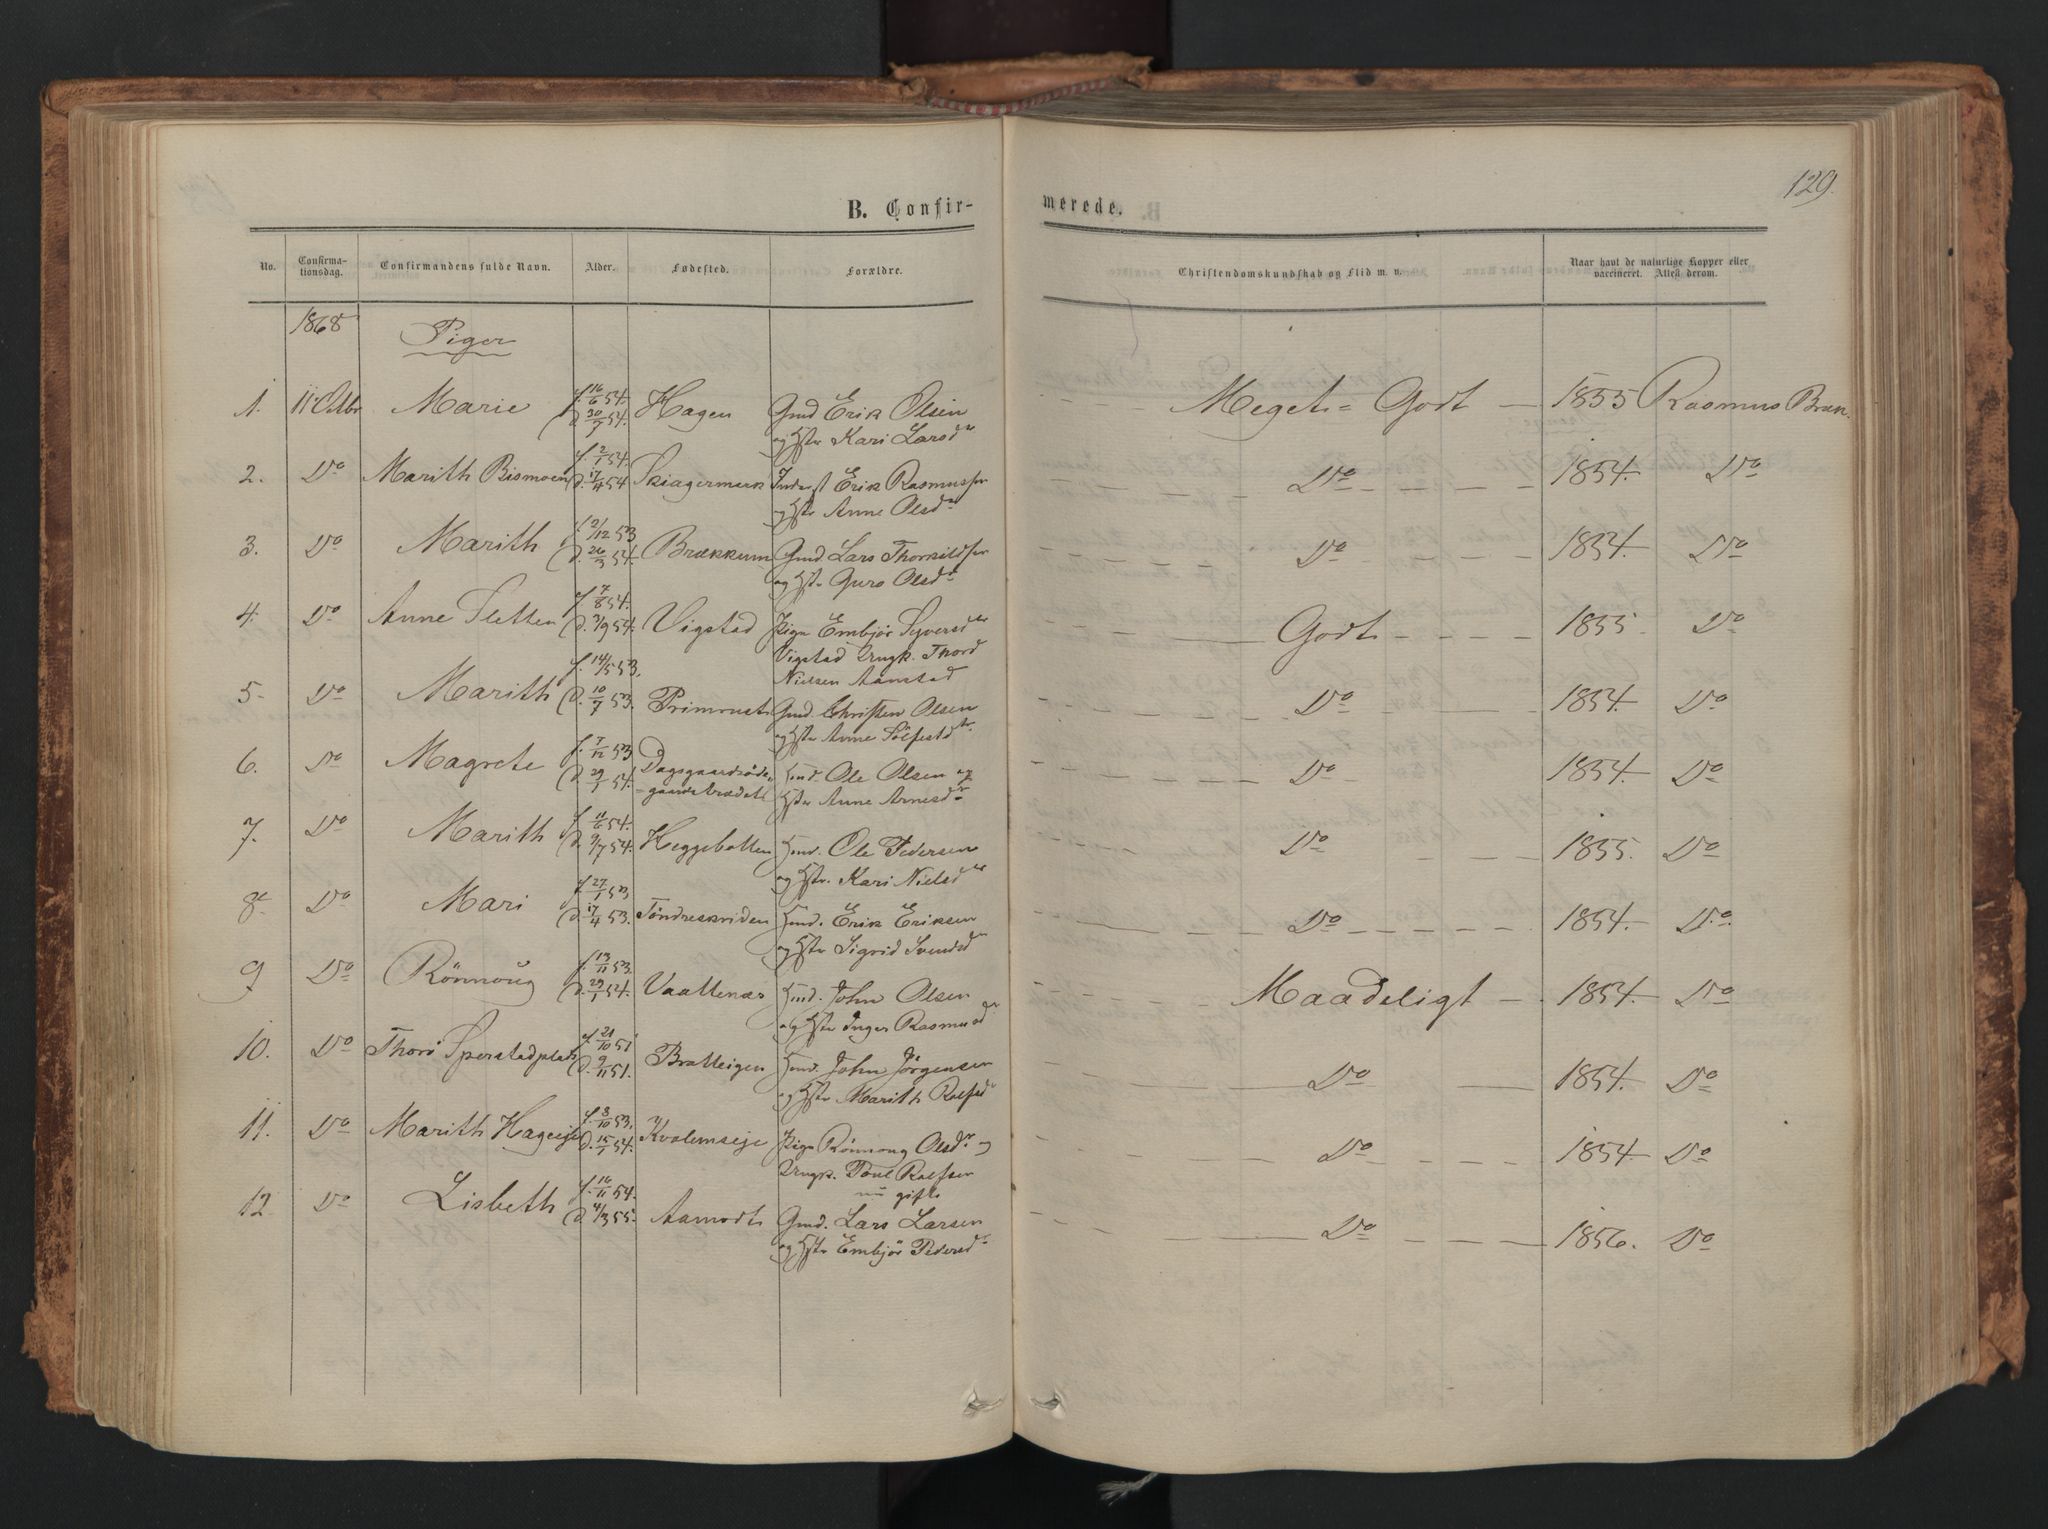 129.
B. Confir- merede.
No. Confirma-tionsdag. Confirmandens fulde Navn. Alder. Fødested. Forældre. Christendomskundskab og Flid m. v. Naar havt de naturlige Kopper eller vaccineret. Attest derom.
1868 Piger
1. 11 Octbr Marie f. 16/6 54. d. 30/7 54. Hagen Gmd Erik Olsen
og Hstr Kari Larsdr Meget-Godt 1855 Rasmus Bræk.
2. Do Marith Bismoen f. 2/1 54. d. 17/4 54 Skiagermark Inderst Erik Rasmussen
og Hstr Anne Olsdr Do 1854. Do
3. Do Marith f. 2/12 53 d. 26/3 54. Brækkum Gmd Lars Thorkildsen
og Hstr Guro Olsdr Do 1854. Do
4. Do Anne Sletten f. 7/8 54. d. 3/9 54. Vigstad Pige Embjør Syversdtr
Vigstad Ungk. Thord
Nielsen Aanstad Godt 1855 Do
5 Do Marith f. 14/5 53. d. 10/7 53. Primrust Gmd. Christen Olsen
og Hstr Anne Sølfestdtr. Do 1854. Do
6. Do Magrete f. 7/12 53 d. 29/1 54. Dagsgaardsøde-
-gaardstrædet Hmd. Ole Olsen og
Hstr Anne Arnesdr Do 1854. Do
7. Do Marith f. 11/6 54. d. 9/7 54. Heggebotten Hmd. Ole Pedersen
og Hstr. Kari Nielsdtr Do 1855. Do
8 Do Mari f. 27/1 53 d. 17/4 53. Tøndreskriden Hmd. Erik Eriksen
og Hstr Sigrid Svendsd Do 1854. Do.
9 Do Rønnoug f. 13/11 53. d. 29/1 54. Vaattenæs Hmd. John Olsen
og Hstr Inger Rasmusdr Maadeligt 1854. Do
10. Do Thore Sperstadplads f. 21/10 51 d. 9/11 51. Bratteigen Hmd. John Jørgensen
og Hstr Marith Rolfsd Do 1854. Do
11. Do Marith Hageeje f. 8/10 53, d. 15/1 54. Kvalemseje Pige Rønnoug Olsdr og
Ungk. Poul Rolfsen
nu gifte Do 1854. Do
12 Do Lisbeth f. 16/11 54. d. 4/3 55. Aamodt Gmd. Lars Larsen
og Hstr Embjør Pedersd Do 1856. Do